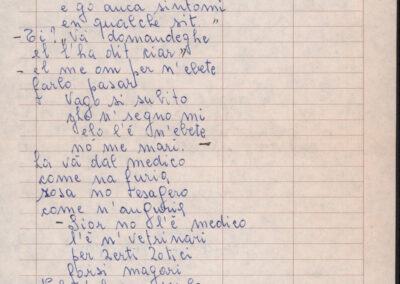 e go anca sintomi
en qualche sit"
- Ti? "Vá domandeghe
el l'ha dit ciar"
- el me om per n'ebete
farlo pasar
Vago si subito
zho n' segno mi
elo l'é n'ebete
no me mari. -
La vá dal medico
come na furia
rosa no resagero
come n'anguria
- Sior no l'é medico
l'é n'vetrinari
per zerti zotici
forsi magari